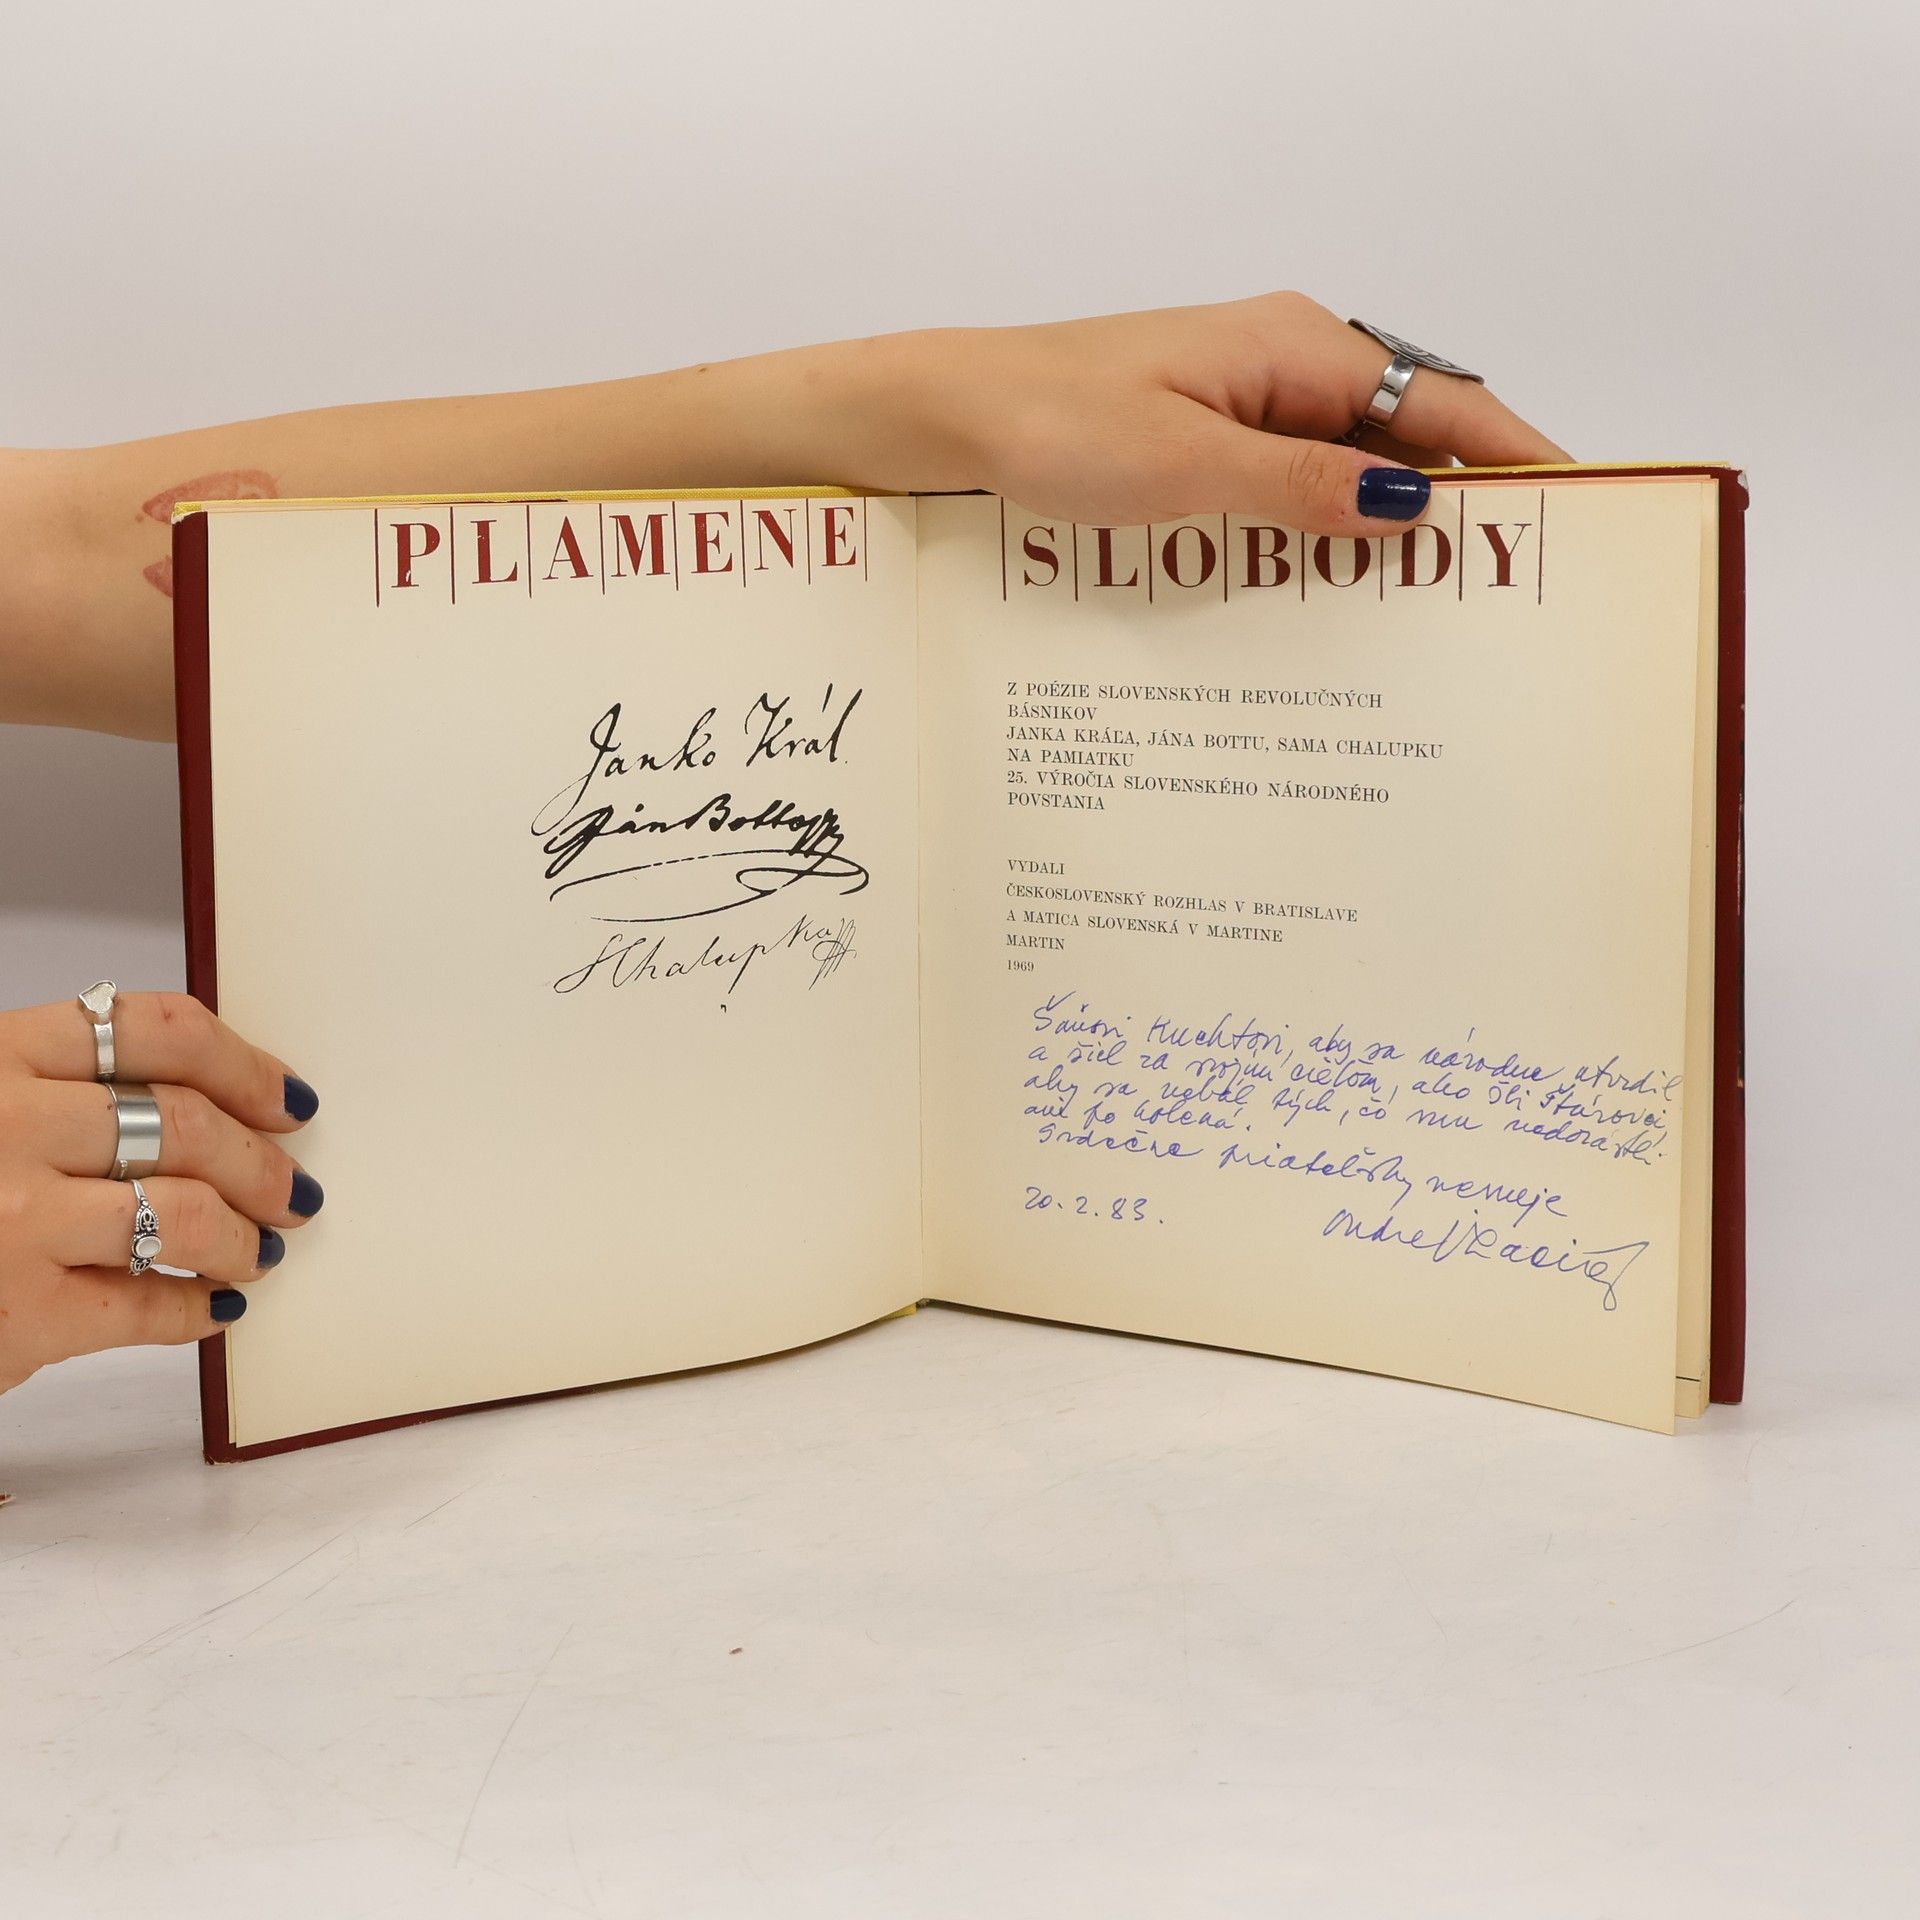 PLAMENE SLOBODY
Janko Kráľ.
Ján Botto
SChalupka
Z POÉZIE SLOVENSKÝCH REVOLUČNÝCH
BÁSNIKOV
JANKA KRÁĽA, JÁNA BOTTU, SAMA CHALUPKU
NA PAMIATKU
25. VÝROČIA SLOVENSKÉHO NÁRODNÉHO
POVSTANIA
VYDALI
ČESKOSLOVENSKÝ ROZHLAS V BRATISLAVE
A MATICA SLOVENSKÁ V MARTINE
MARTIN
1969
Kuchtovi, aby sa národne utvrdil
a šiel za svojím cieľom, ako šli Štúrovci,
aby sa nebál tých, čo mu nedorástli
ani po kolená.
Srdečne priateľsky venuje
20. 2. 83.
Ondrej